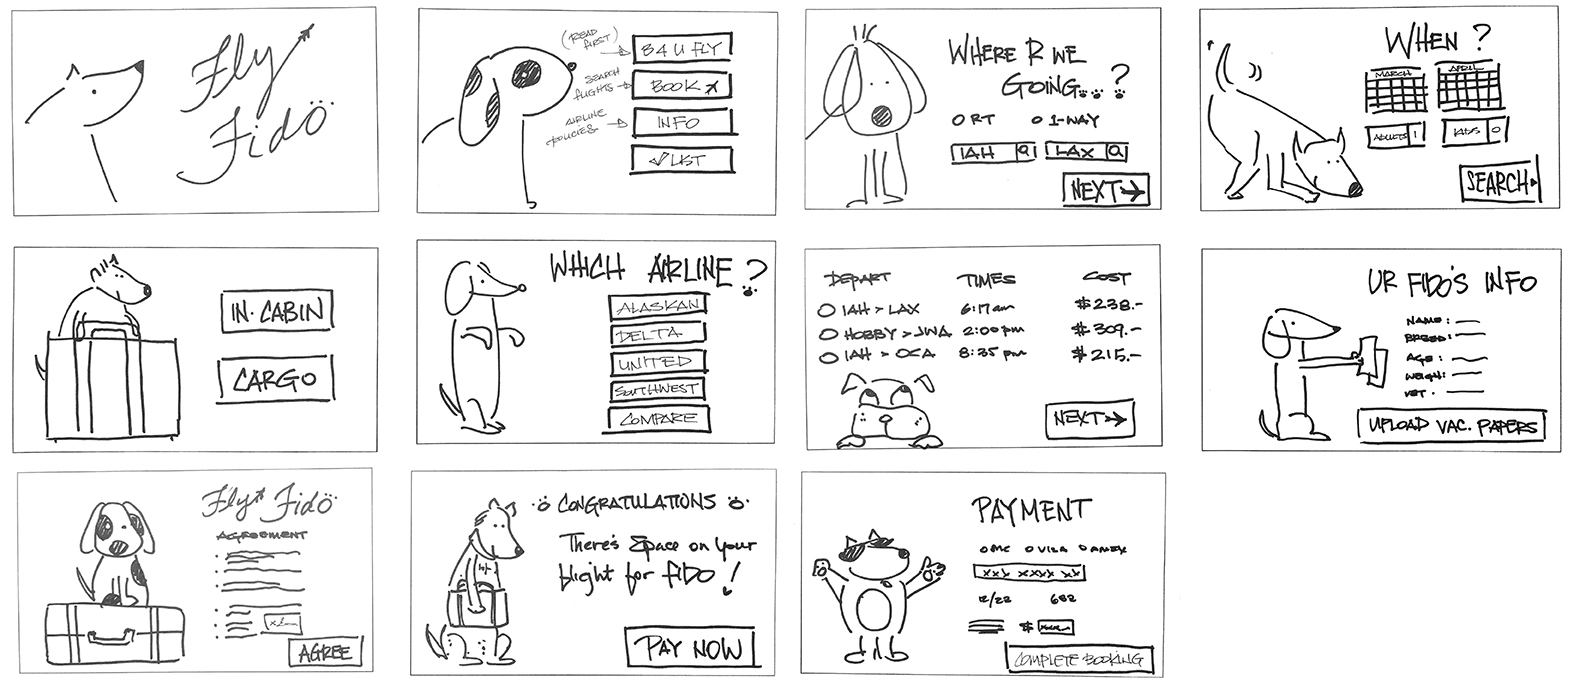 Fly
Fido
(READ FIRST)
B4 U FLY
SEARCH FLIGHTS
BOOK
AIRLINE POLICIES
INFO
✓LIST
WHERE R WE
GOING...?
O RT O 1-WAY
IAH LAX
NEXT→
WHEN?
MARCH APRIL
ADULTS 1 KIDS 0
SEARCH
IN·CABIN
CARGO
WHICH AIRLINE?
ALASKAN
DELTA
UNITED
SOUTHWEST
COMPARE
DEPART TIMES COST
O IAH > LAX 6:17am $238.-
O HOBBY > JWA 2:00pm $309.-
O IAH > OCA 8:35 pm $215.-
NEXT→
UR FIDO'S INFO
NAME:
BREED:
AGE:
WEIGH:
VET.
UPLOAD VAC. PAPERS
Fly Fido
AGREEMENT
AGREE
CONGRATULATIONS
There's Space on your
flight for FIDO!
PAY NOW
PAYMENT
O MC O VISA O AMEX
xxx xxxx xx
12/22 682
$
COMPLETE BOOKING